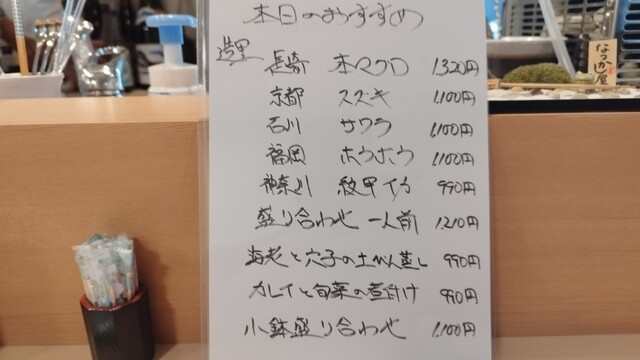 本日のおすすめ
造里 長崎 本マグロ 1,320円
京都 スズキ 1,100円
石川 サワラ 1,100円
福岡 ホウボウ 1,100円
神奈川 紋甲イカ 990円
盛り合わせ 一人前 1,210円
海老と穴子の土びん蒸し 990円
カレイと旬菜の煮付け 990円
小鉢盛り合わせ 1,100円